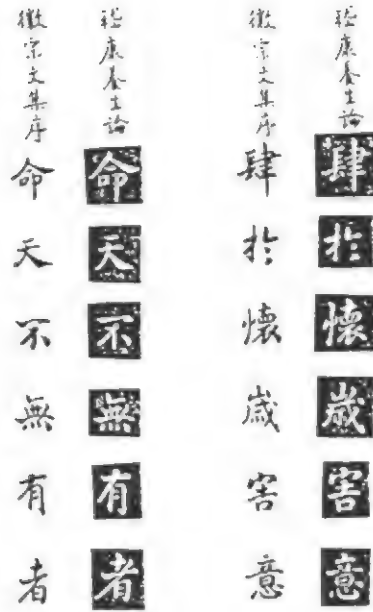 嵇康养生論
肆於懷歲害意
徽宗文集序
肆於懷歲害意
嵇康养生論
命天不無有者
徽宗文集序
命天不無有者